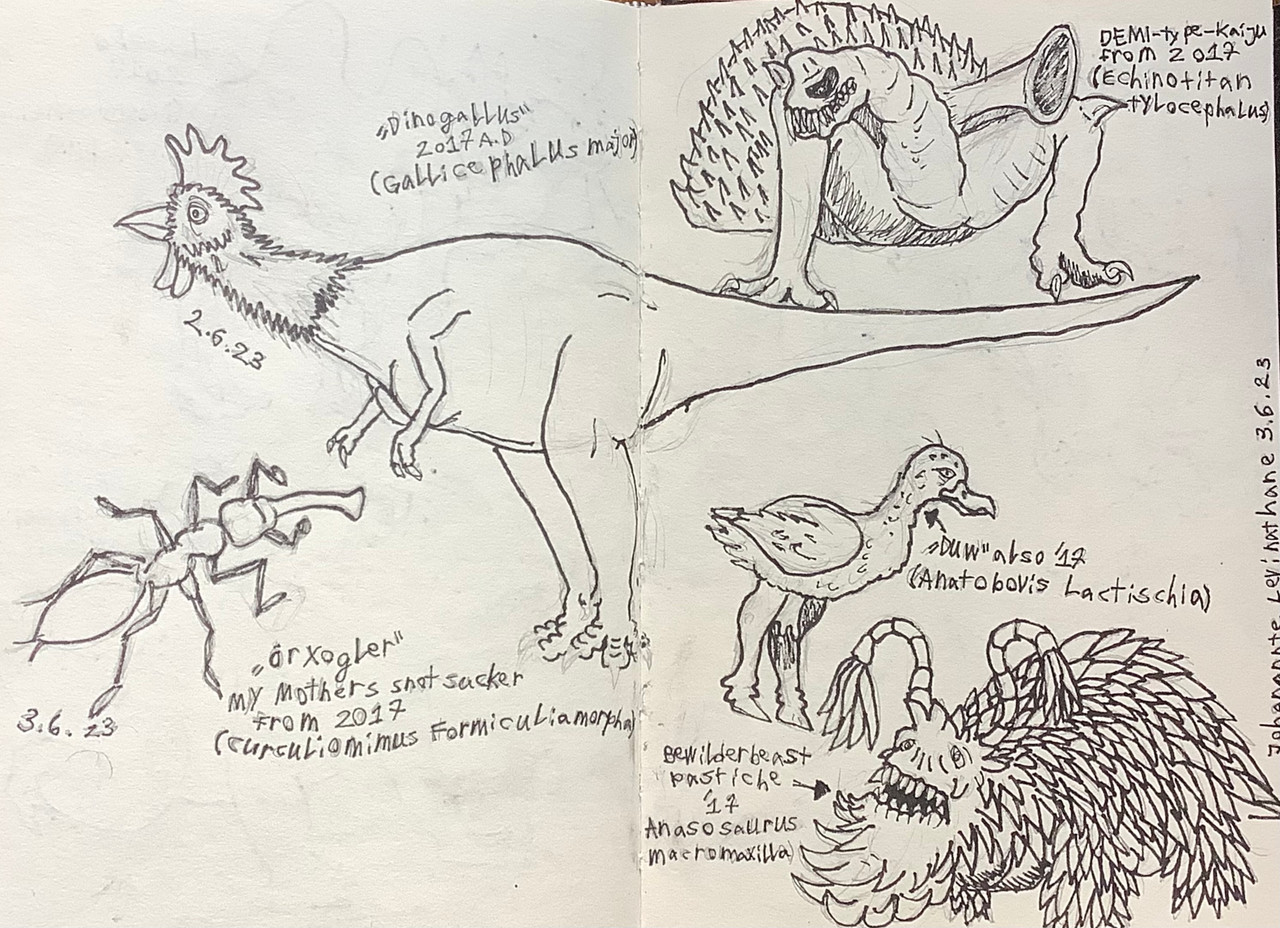 „Dinogallus"
2017 A.D
(Gallicephalus major)
2.6.23
„örxogler"
My Mothers snotsucker
from 2017
(Curculiomimus Formiculiamorpha)
3.6.23
DEMI-type-Kaiju
from 2017
(Echinotitan
tylocephalus)
„Duw" also '17
(Anatobovis Lactischia)
Bewilderbeast
pastiche
'17
Anasosaurus
macromaxilla)
Johamannte Levinathane 3.6.23